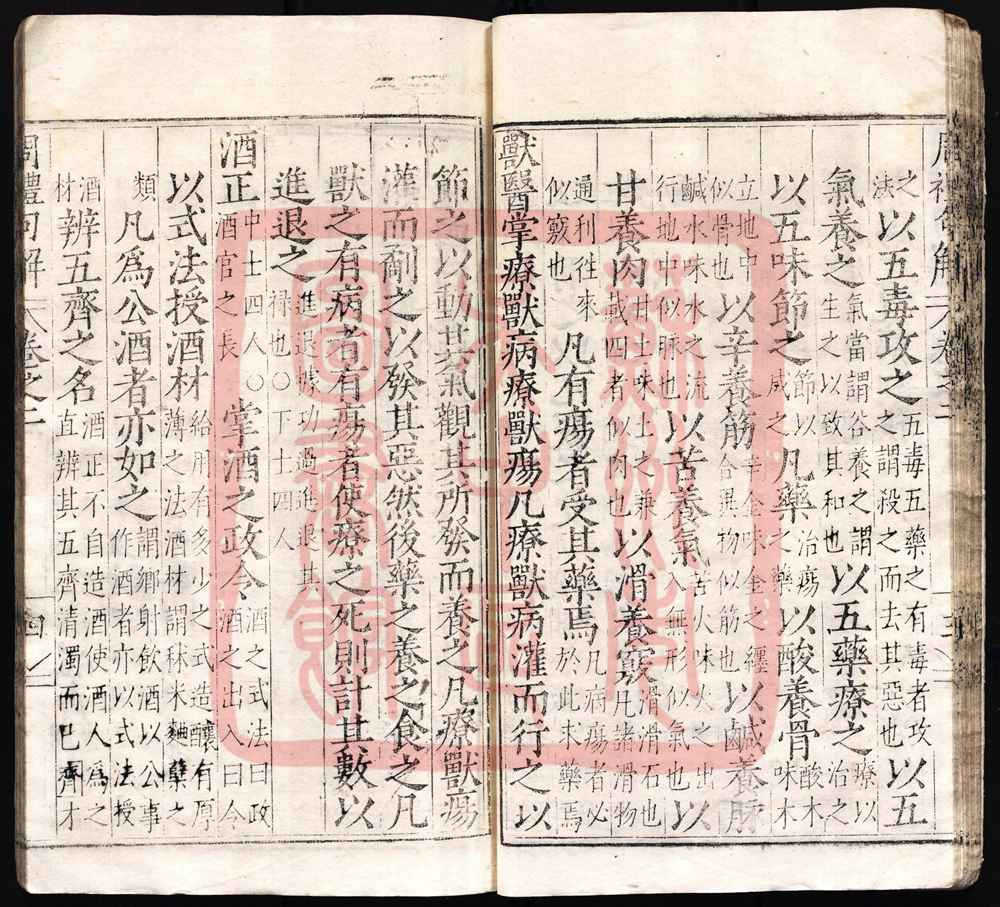 周禮句解 卷之二 三
之法以五毒攻之五毒五藥之有毒者攻之謂殺之而去其惡也以五
氣養之氣當謂谷養之謂生之以致其和也以五藥療之療以治之
以五味節之節以咸之凡藥治瘍之藥以酸養骨酸木味木
立地中似骨也以辛養筋辛金味金之纏合異物似筋也以鹹養脉
鹹水味水之流行地中似脉也以苦養氣苦火味火之出入無形似氣也以
甘養肉甘土味土之兼載四者似肉也以滑養竅滑滑石也凡諸滑物
通利往來似竅也凡有瘍者受其藥焉凡病瘍者必於此求藥焉
獸醫掌療獸病療獸瘍凡療獸病灌而行之以
節之以動其氣觀其所發而養之凡療獸瘍
灌而劀之以發其惡然後藥之養之食之凡
獸之有病者有瘍者使療之死則計其數以
進退之進退據功過進退其祿也〇下士四人
酒正中士四人〇酒官之長掌酒之政令酒之式法曰政酒之出入曰令
以式法授酒材給用有多少之式造釀有厚薄之法酒材謂秫米麴糱之
類凡為公酒者亦如之謂鄉射飲酒以公事作酒者亦以式法授
酒材辨五齊之名酒正不自造酒使酒人為之直辨其五齊清濁而已齊才
周禮句解 卷之二 四